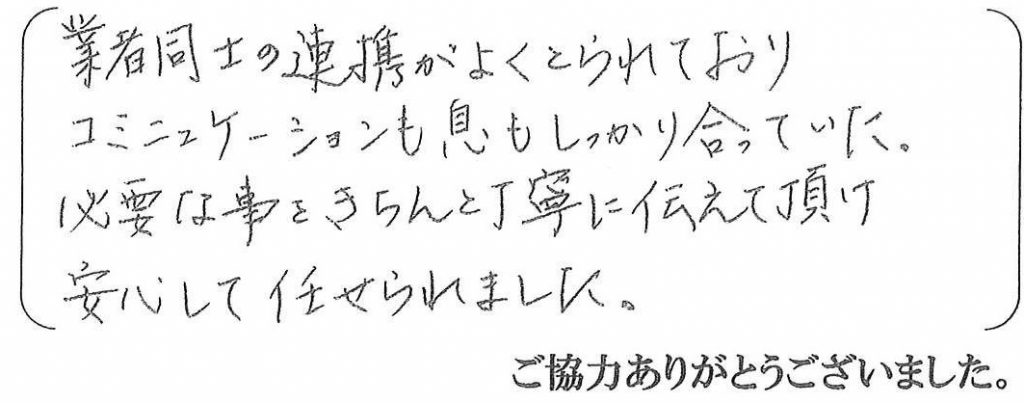 業者同士の連携がよくとられており
コミニュケーションも息もしっかり合っていた。
必要な事をきちんと丁寧に伝えて頂け
安心して任せられました。
ご協力ありがとうございました。